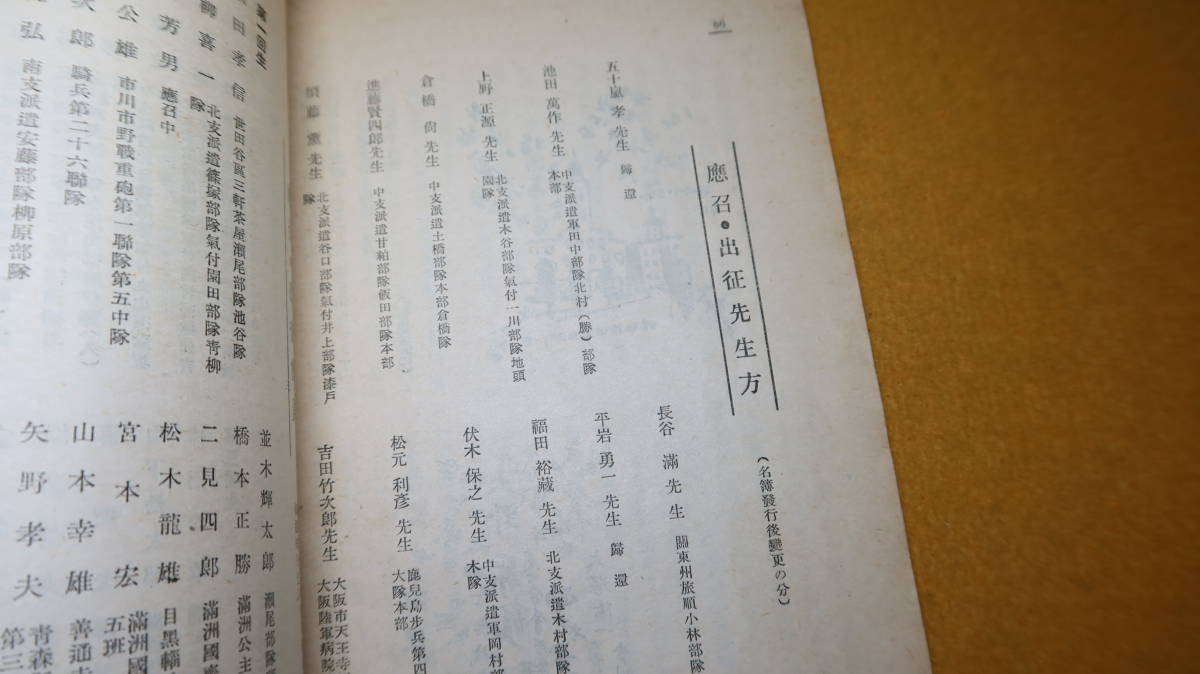 66
應召・出征先生方
(名簿發行後變更の分)
五十嵐孝先生 歸還
池田萬作先生 中支派遣軍田中部隊北村(勝)部隊
本部
上野正源先生 北支派遣木谷部隊氣付一川部隊地頭
園隊
倉橋尙先生 中支派遣土橋部隊本部倉橋隊
進藤賢四郎先生 中支派遣甘粕部隊飯田部隊本部
須藤薰先生 北支派遣谷口部隊氣付井上部隊漆戶
隊
長谷滿先生 關東州旅順小林部隊
平岩勇一先生 歸還
福田裕藏先生 北支派遣木村部隊
伏木保之先生 中支派遣軍岡村部隊
木隊
松元利彥先生 鹿兒島步兵第四
大隊本部
吉田竹次郎先生 大阪市天王寺
大阪陸軍病院
第一回生
田孝信 世田谷區三軒茶屋瀨尾部隊池谷隊
喜一 北支派遣篠塚部隊氣付園田部隊靑柳
隊
芳男 應召中
公雄 市川市野戰重砲第一聯隊第五中隊
次郎 騎兵第二十六聯隊
弘 南支派遣安藤部隊柳原部隊
並木輝太郎 瀨尾部隊
橋本正勝 滿洲公主
二見四郎 滿洲國
松木龍雄 目黑輜
宮本宏 滿洲國
五班
山本幸雄 善通
矢野孝夫 靑森
第三